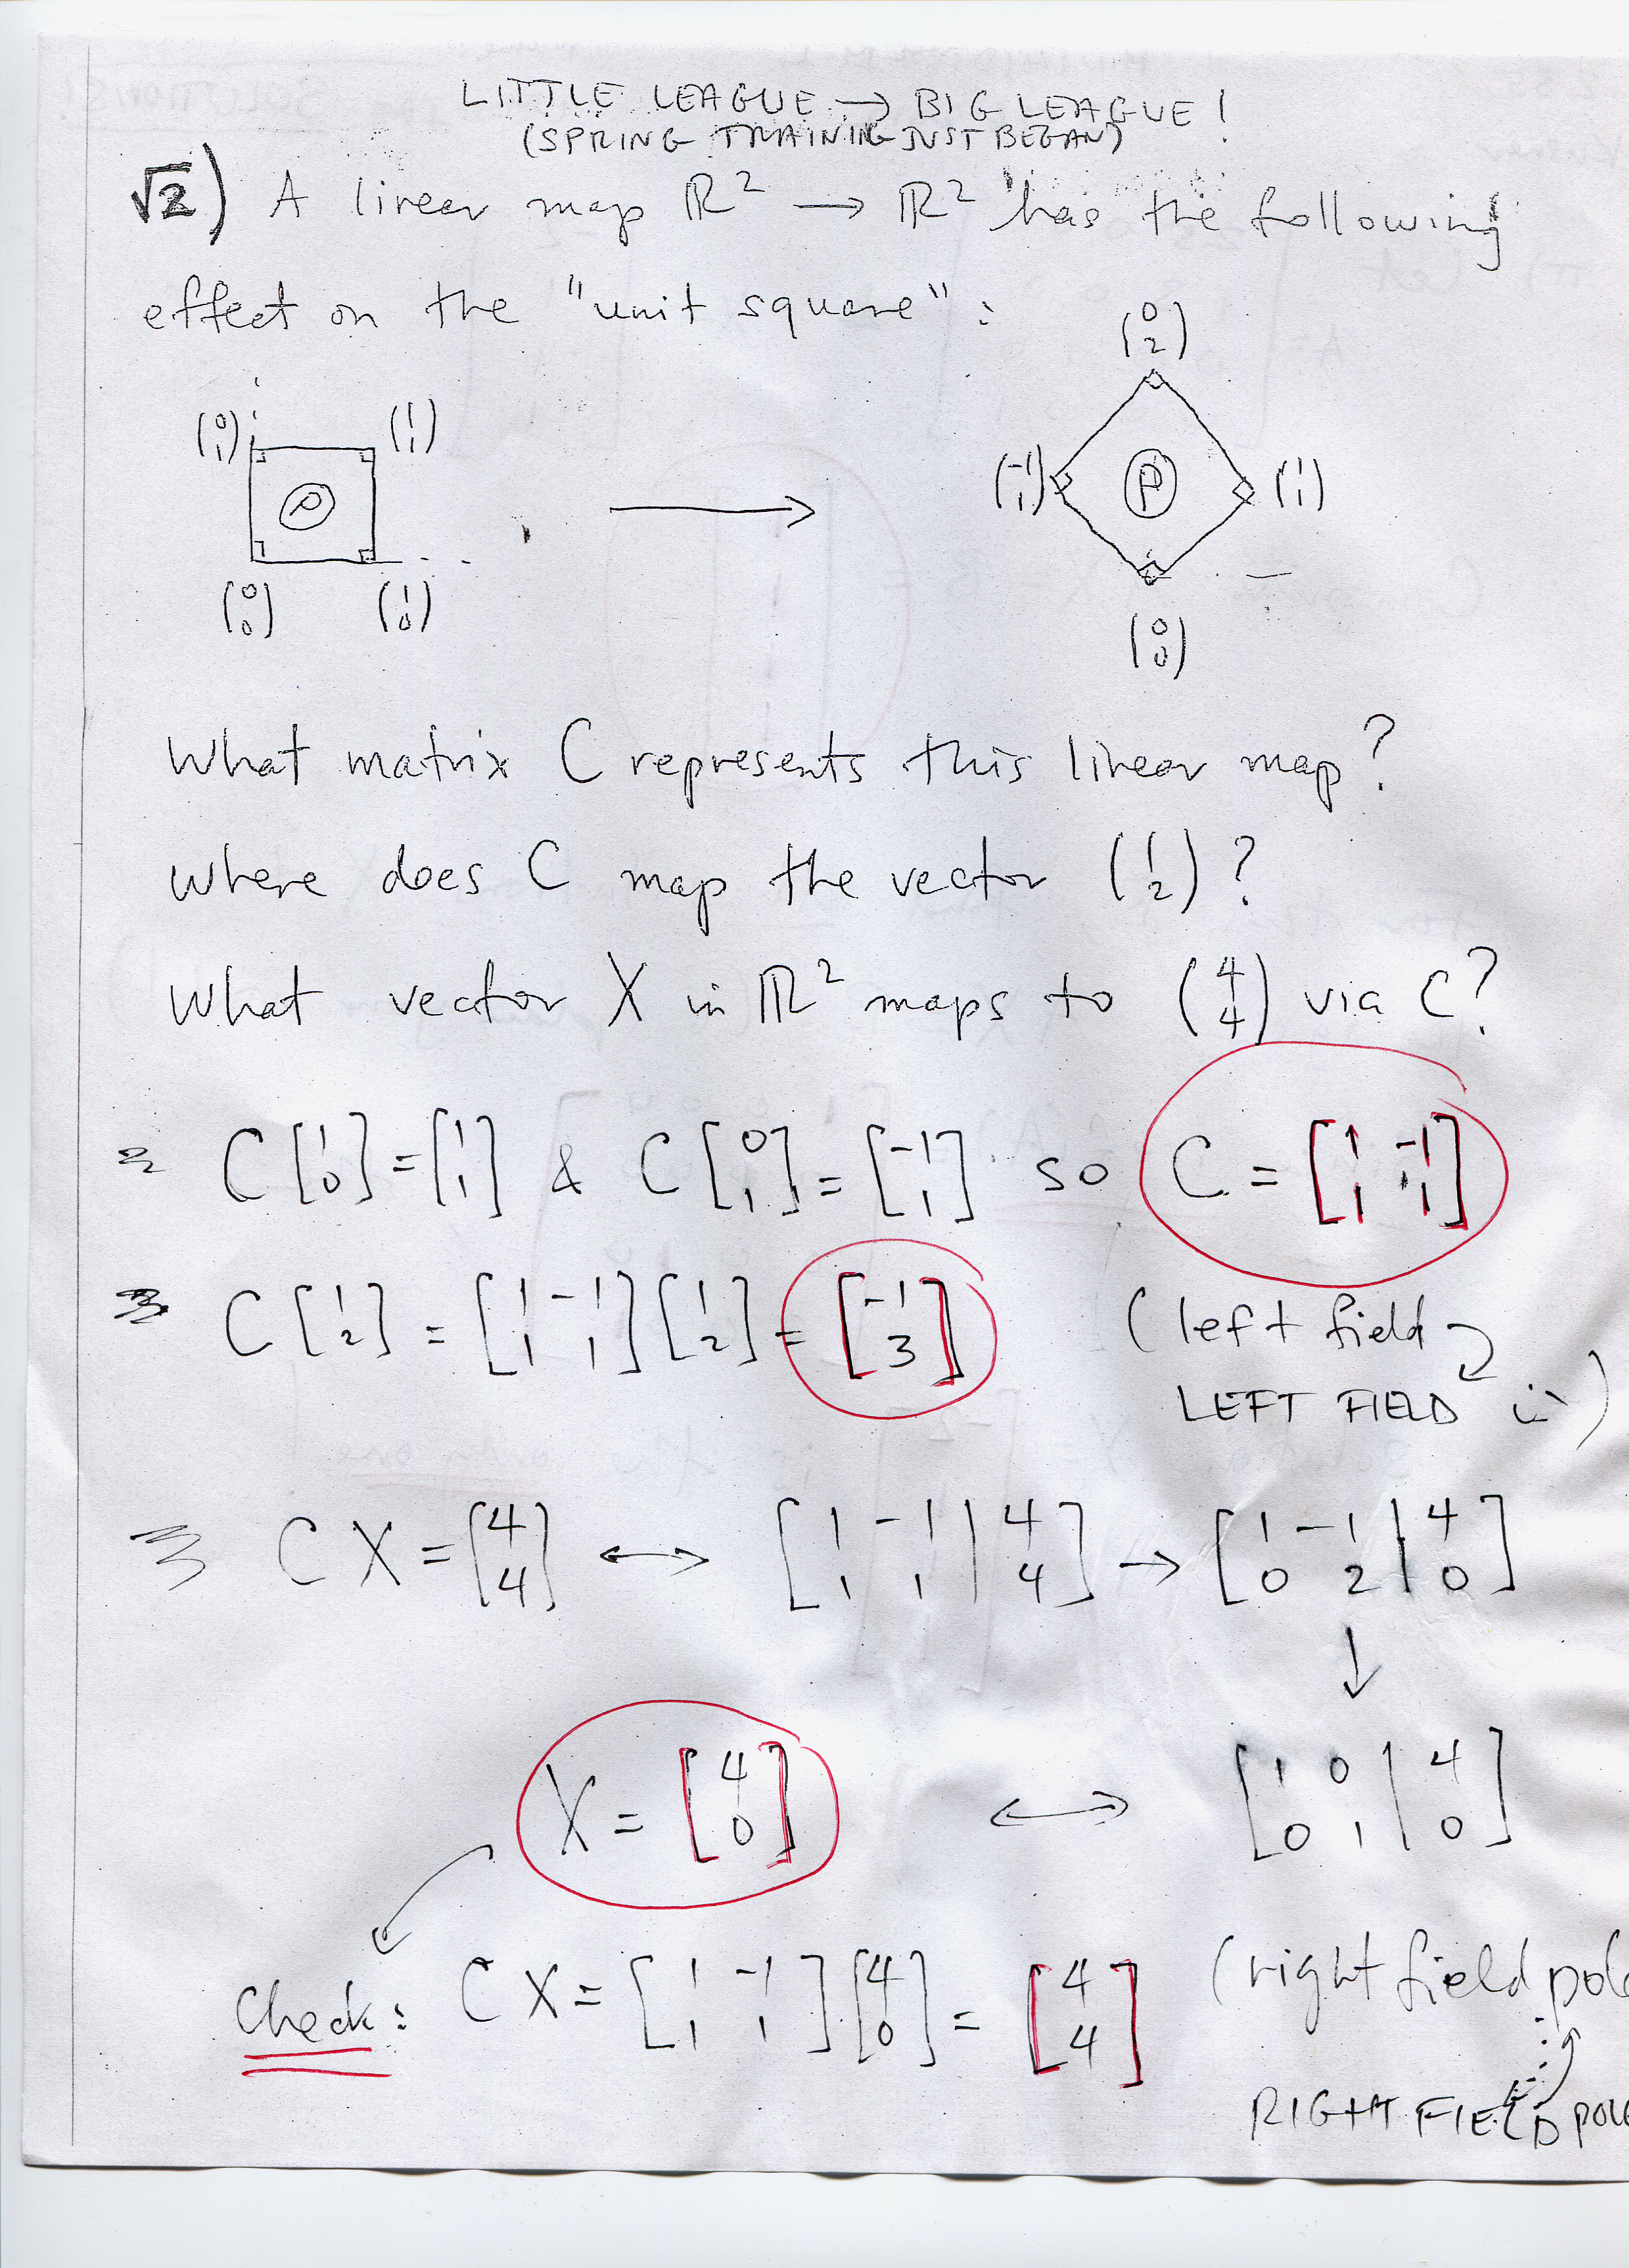 LITTLE LEAGUE → BIG LEAGUE!
(SPRING TRAINING JUST BEGAN)
√2) A linear map ℝ² → ℝ² has the following
effect on the "unit square":
(0 2)
(0 1) (1 1)
P → (-1 1) P (1 1)
(0 0) (1 0)
(0 0)
What matrix C represents this linear map?
Where does C map the vector (1 2)?
What vector X in ℝ² maps to (4 4) via C?
C[1 0] = [1 1] & C[0 1] = [-1 1] so C = [1 -1; 1 1]
C[1 2] = [1 -1; 1 1][1 2] = [-1 3]
(left field
LEFT FIELD :)
CX = [4 4] ↔ [1 -1 | 4; 1 1 | 4] → [1 -1 | 4; 0 2 | 0]
↓
X = [4 0] ↔ [1 0 | 4; 0 1 | 0]
Check: CX = [1 -1; 1 1][4 0] = [4 4] (right field
RIGHT FIELD